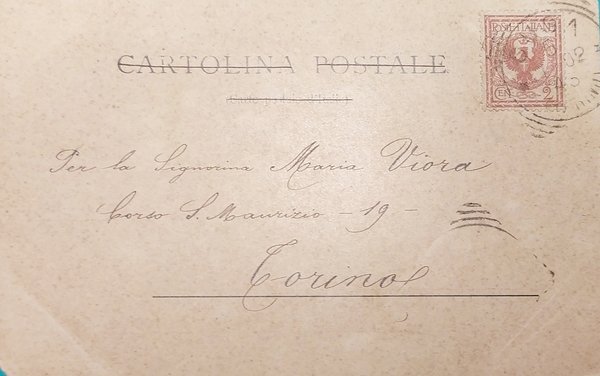 CARTOLINA POSTALE
POSTE ITALIANE
CENT 2
1
02
Per la Signorina Maria Viora
Corso S. Maurizio - 19 -
Torino